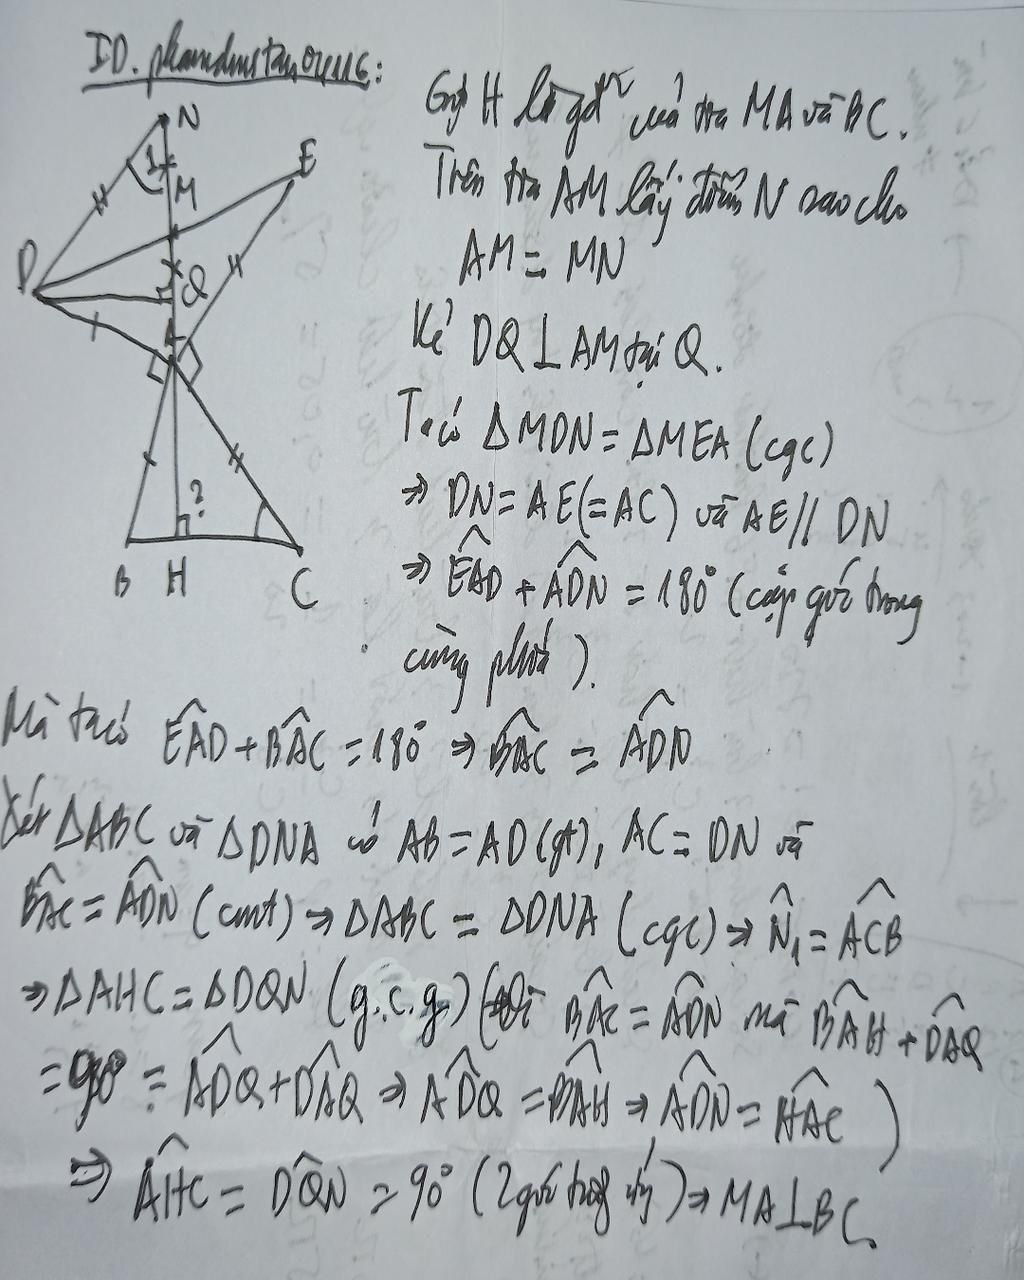 ID. phamdinhtan041116:
Gọi H là gđ của tia MA và BC.
Trên tia AM lấy điểm N sao cho
AM = MN
Kẻ DQ ⊥ AM tại Q.
Ta có ΔMDN = ΔMEA (cgc)
⇒ DN = AE (= AC) và AE // DN
⇒ \widehat{EAD} + \widehat{ADN} = 180° (cặp góc trong
cùng phía).
Mà ta có \widehat{EAD} + \widehat{BAC} = 180° ⇒ \widehat{BAC} = \widehat{ADN}
Xét ΔABC và ΔDNA có AB = AD (gt), AC = DN và
\widehat{BAC} = \widehat{ADN} (cmt) ⇒ ΔABC = ΔDNA (cgc) ⇒ \widehat{N}₁ = \widehat{ACB}
⇒ ΔAHC = ΔDQN (g.c.g) (vì \widehat{BAC} = \widehat{ADN} mà \widehat{BAH} + \widehat{DAQ}
= 90° = \widehat{ADQ} + \widehat{DAQ} ⇒ \widehat{ADQ} = \widehat{BAH} ⇒ \widehat{ADN} = \widehat{HAC})
⇒ \widehat{AHC} = \widehat{DQN} = 90° (2 góc tương ứng) ⇒ MA ⊥ BC.
N
1
M
E
D
Q
A
?
B H C